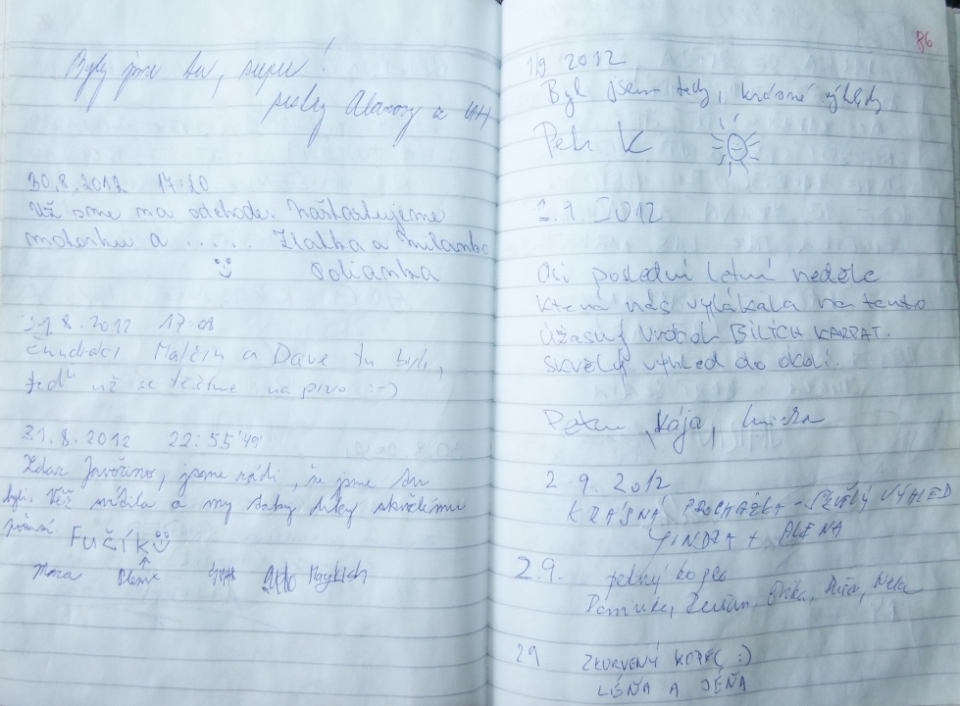 Byly jsme tu, super!
holky
30.8.2012 17:20
Už sme na odchode. Naštartujeme
motorku a ..... Zlatka a Milanko
Soljanka
31.8.2012 17:08
čundráci Malčin a Dave tu byli,
teď už se těšíme na pivo :-)
31.8.2012 22:55'49"
Zdar Javořino, jsme rádi, že jsme tu
byli. Věž svítila a my taky díky skvělému
Fučík
86
1/9 2012
Byl jsem tady, krásné výhledy
Petr K
2.9 2012
Asi poslední letní neděle
která nás vylákala na tento
úžasný vrchol BÍLÍCH KARPAT.
Skvělý výhled do okolí.
Petr, Kája,
2.9.2012
KRÁSNÁ PROCHÁZKA - SKVĚLÝ VÝHLED
JINDRA + ALENA
2.9. pěkný kopec
Dominika, Nela
29 ZKURVENÝ KOPEC :)
LÉŇA A JÉŇA